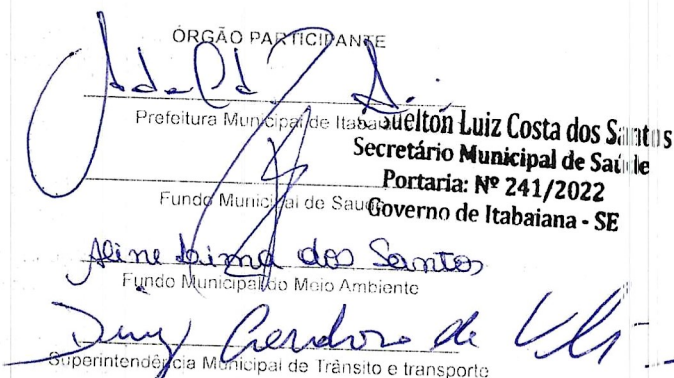 ÓRGÃO PARTICIPANTE
Prefeitura Municipal de Itabaiana
Suelton Luiz Costa dos Santos
Secretário Municipal de Saúde
Portaria: Nº 241/2022
Fundo Municipal de Saúde
Governo de Itabaiana - SE
Aline Lima dos Santos
Fundo Municipal do Meio Ambiente
Superintendência Municipal de Trânsito e transporte